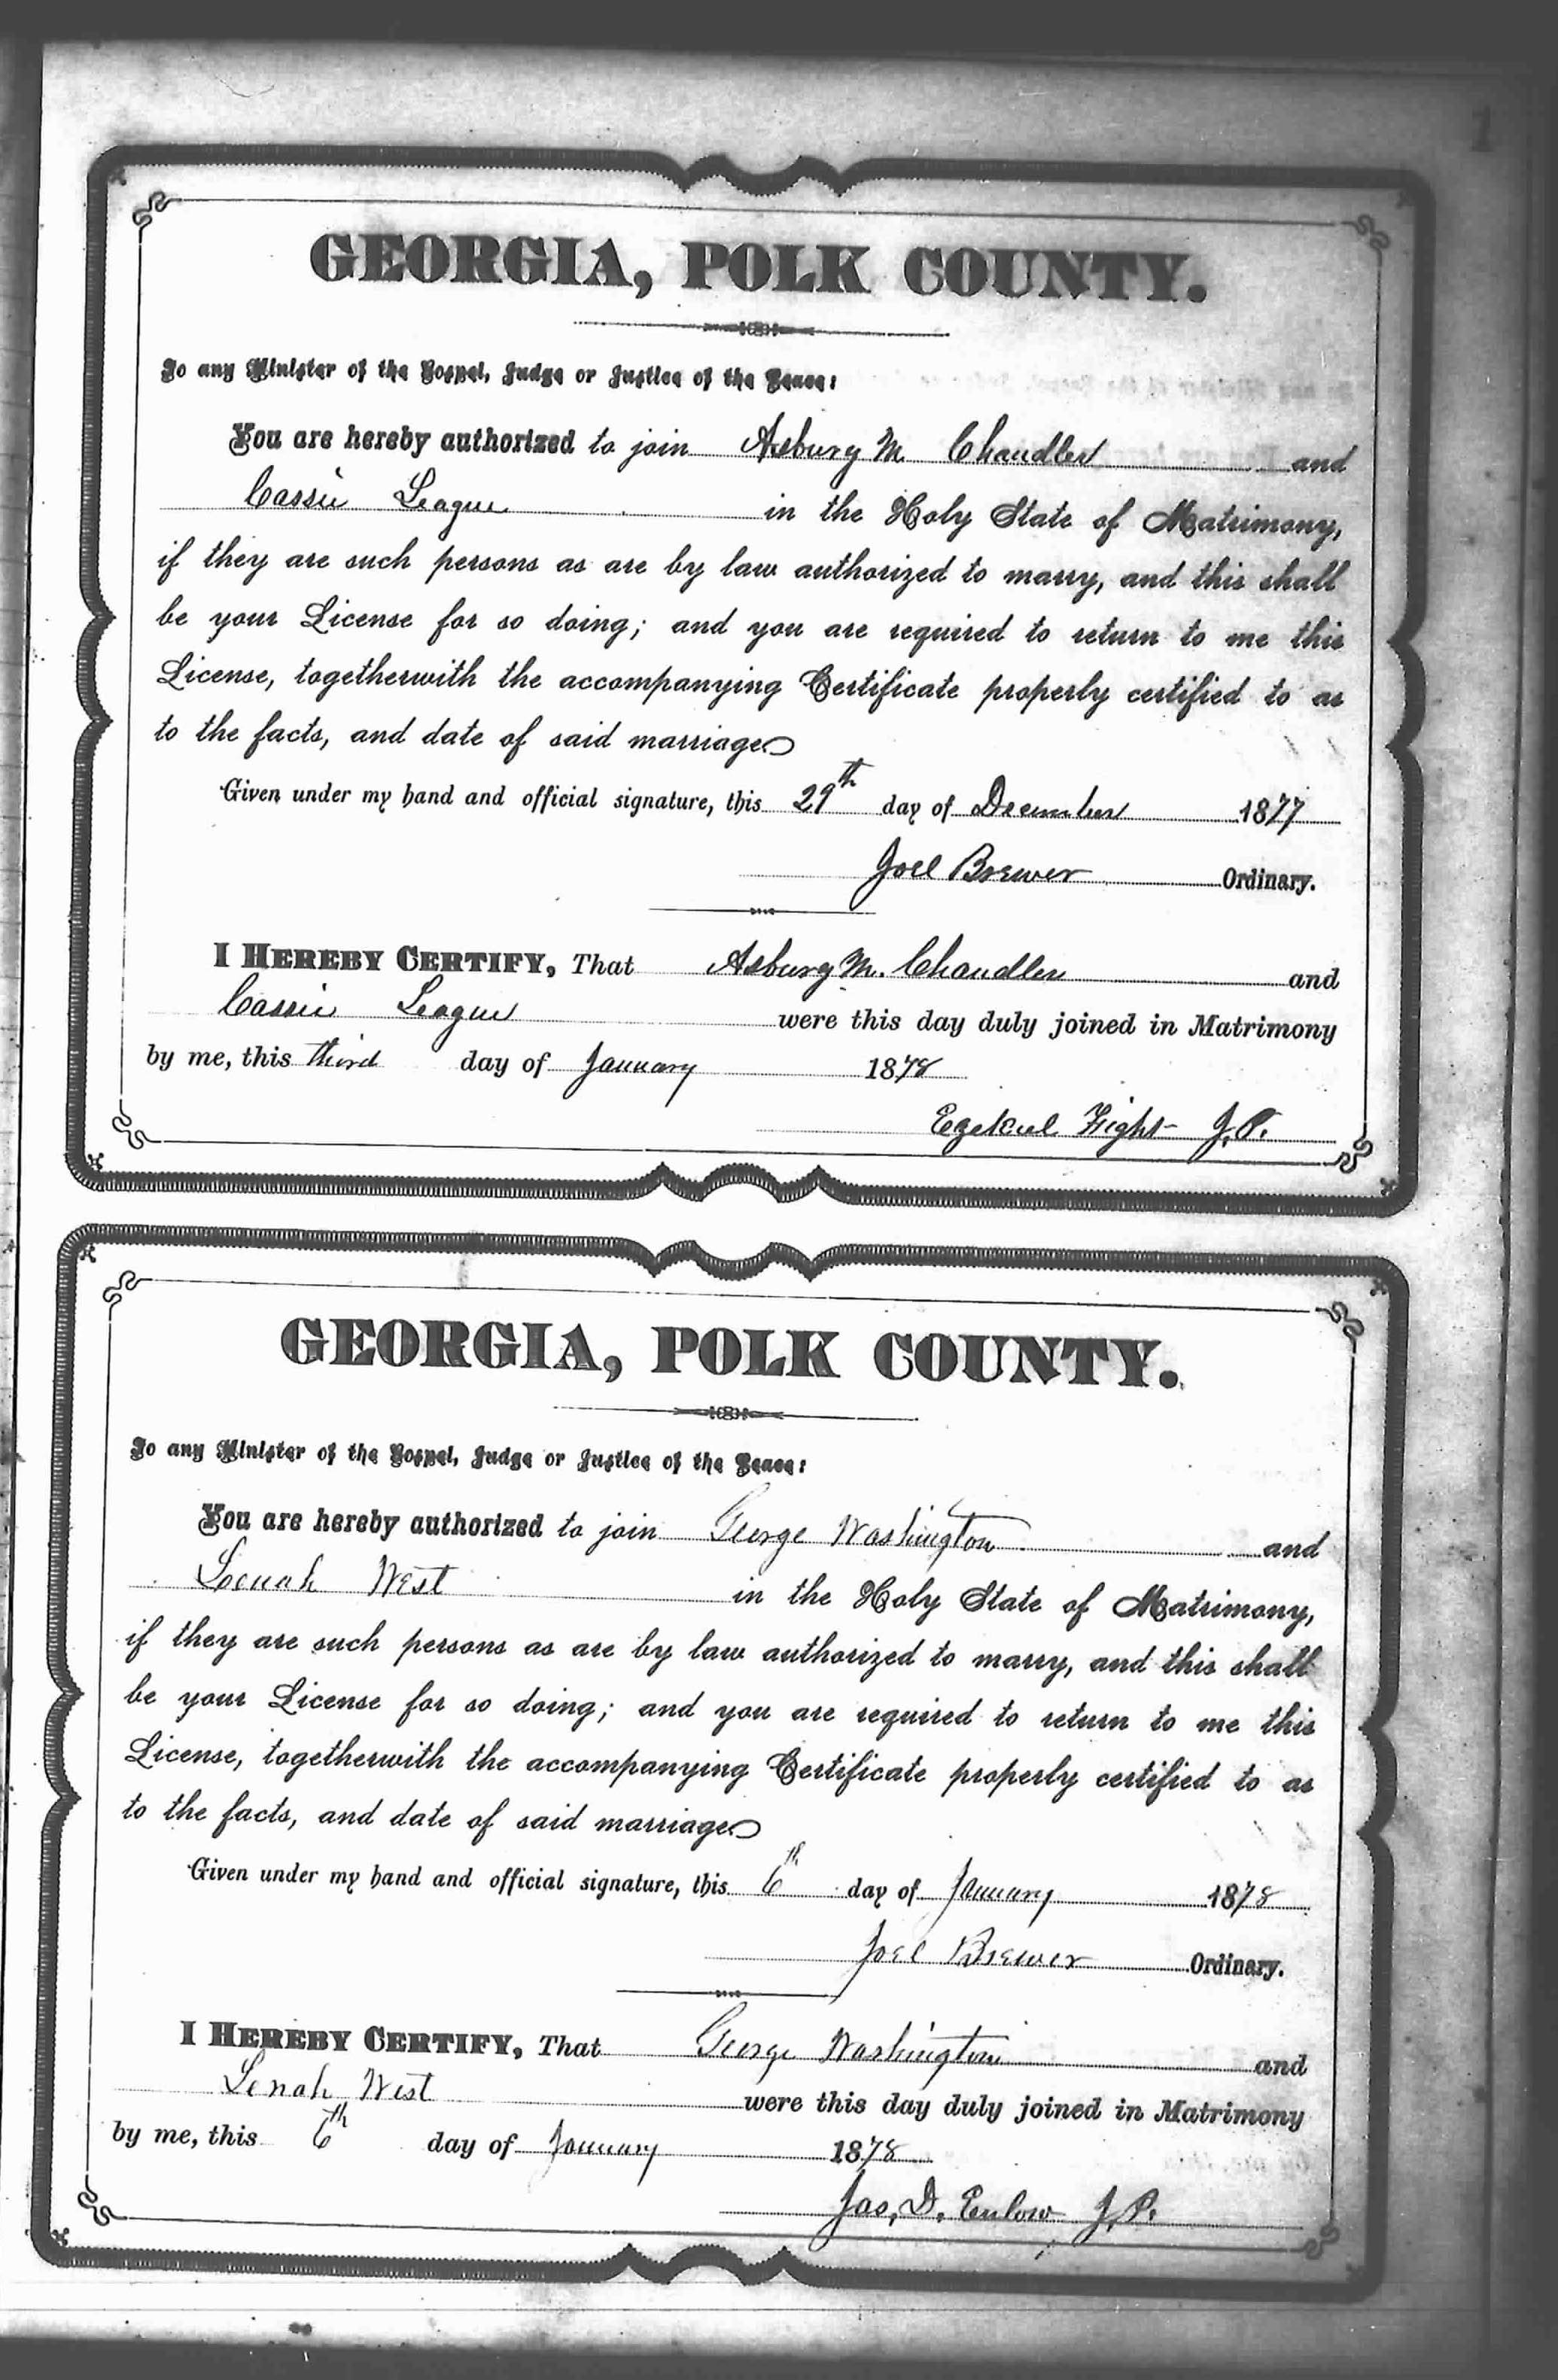 1
GEORGIA, POLK COUNTY.
To any Minister of the Gospel, Judge or Justice of the Peace:
You are hereby authorized to join Asbury M Chandler and
Cassie League in the Holy State of Matrimony,
if they are such persons as are by law authorized to marry, and this shall
be your License for so doing; and you are required to return to me this
License, togetherwith the accompanying Certificate properly certified to as
to the facts, and date of said marriage
Given under my hand and official signature, this 29th day of December 1877
Joel Brewer Ordinary.
I HEREBY CERTIFY, That Asbury M. Chandler and
Cassie League were this day duly joined in Matrimony
by me, this third day of January 1878
Ezekiel Fight J.P.
GEORGIA, POLK COUNTY.
To any Minister of the Gospel, Judge or Justice of the Peace:
You are hereby authorized to join George Washington and
Lenah West in the Holy State of Matrimony,
if they are such persons as are by law authorized to marry, and this shall
be your License for so doing; and you are required to return to me this
License, togetherwith the accompanying Certificate properly certified to as
to the facts, and date of said marriage
Given under my hand and official signature, this 6th day of January 1878
Joel Brewer Ordinary.
I HEREBY CERTIFY, That George Washington and
Lenah West were this day duly joined in Matrimony
by me, this 6th day of January 1878
Jas, D. Enlow J.P.